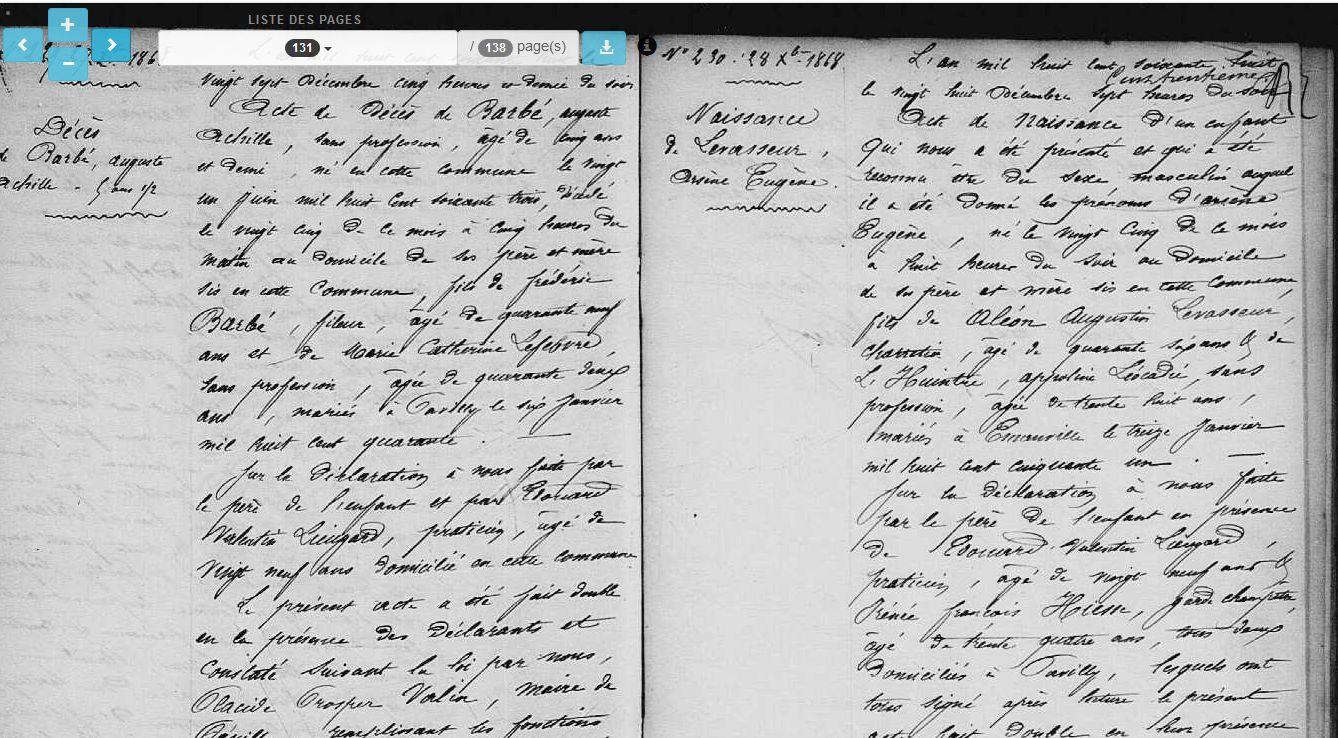 LISTE DES PAGES
131
/ 138 page(s)
vingt sept Décembre cinq heures et demie du soir
Acte de Décès de Barbé, auguste
achille, sans profession, âgé de cinq ans
et demi, né en cette commune le vingt
un juin mil huit cent soixante trois, décédé
le vingt cinq de ce mois à cinq heures du
matin au domicile de ses père et mère
sis en cette commune, fils de frédéric
Barbé, fileur, âgé de quarante neuf
ans et de Marie Catherine Lefebvre
sans profession, âgée de quarante deux
ans, mariés à Pavilly le six janvier
mil huit cent quarante.
Sur la Déclaration à nous faite par
le père de l'enfant et par Edouard
Valentin Lieugard, praticien, âgé de
vingt neuf ans domicilié en cette commune
Le présent acte a été fait double
en la présence des Déclarants et
constaté suivant la loi par nous,
Placide Prosper Valin, maire de
Pavilly remplissant les fonctions
Décès
de Barbé, auguste
achille. 5 ans 1/2
N° 230. 28 Xbre 1868
Naissance
de Levasseur,
Arsène Eugène.
L'an mil huit cent soixante huit
le vingt huit Décembre sept heures du soir
Acte de Naissance d'un enfant
qui nous a été présenté et qui a été
reconnu être du sexe masculin auquel
il a été donné les prénoms d'arsène
Eugène, né le vingt cinq de ce mois
à huit heures du soir au domicile
de ses père et mère sis en cette commune
fils de Aléon Augustin Levasseur,
charretier, âgé de quarante six ans & de
L'Huintre, appoline Léocadie, sans
profession, âgée de trente huit ans,
mariés à Emanville le treize janvier
mil huit cent cinquante un.
Sur la déclaration à nous faite
par le père de l'enfant en présence
de Edouard Valentin Lieugard,
praticien, âgé de vingt neuf ans &
Rénée françois Hiesse, garde champêtre,
âgé de trente quatre ans, tous deux
Domiciliés à Pavilly, lesquels ont
tous signé après lecture le présent
acte fait double en leur présence